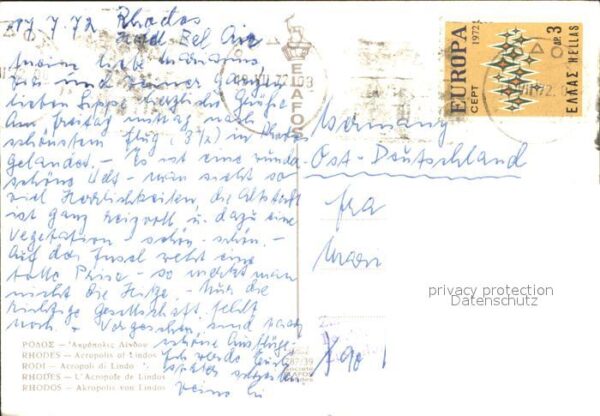 17.7.72 Rhodos
Hotel Bel Air
meine liebe
Dir und Deiner ganzen
lieben Sippe herzliche Grüße
Am Freitag mittag nach
schönstem Flug (3½) in Rhodos
gelandet. – Es ist eine wunder-
schöne Welt – man sieht so
viel Herrlichkeiten, die Altstadt
ist ganz reizvoll u. dazu eine
Vegetation – schön – schön. –
Auf der Insel weht eine
tolle Prise – so merkt man
nicht die Hitze. – Nur die
richtige Gesellschaft fehlt
noch. – Vorgesehen sind noch
schöne Ausflüge.
Ich werde Euch
später
Deine
ΡΟΔΟΣ – Ἀκρόπολις Λίνδου
RHODES – Acropolis of Lindos
RODI – Acropoli di Lindo
RHODES – L'Acropole de Lindos
RHODOS – Akropolis von Lindos
DELAFOS
EUROPA
CEPT
1972
ΔΡ. 3
ΕΛΛΑΣ HELLAS
Germany
Ost-Deutschland
Fra
privacy protection
Datenschutz